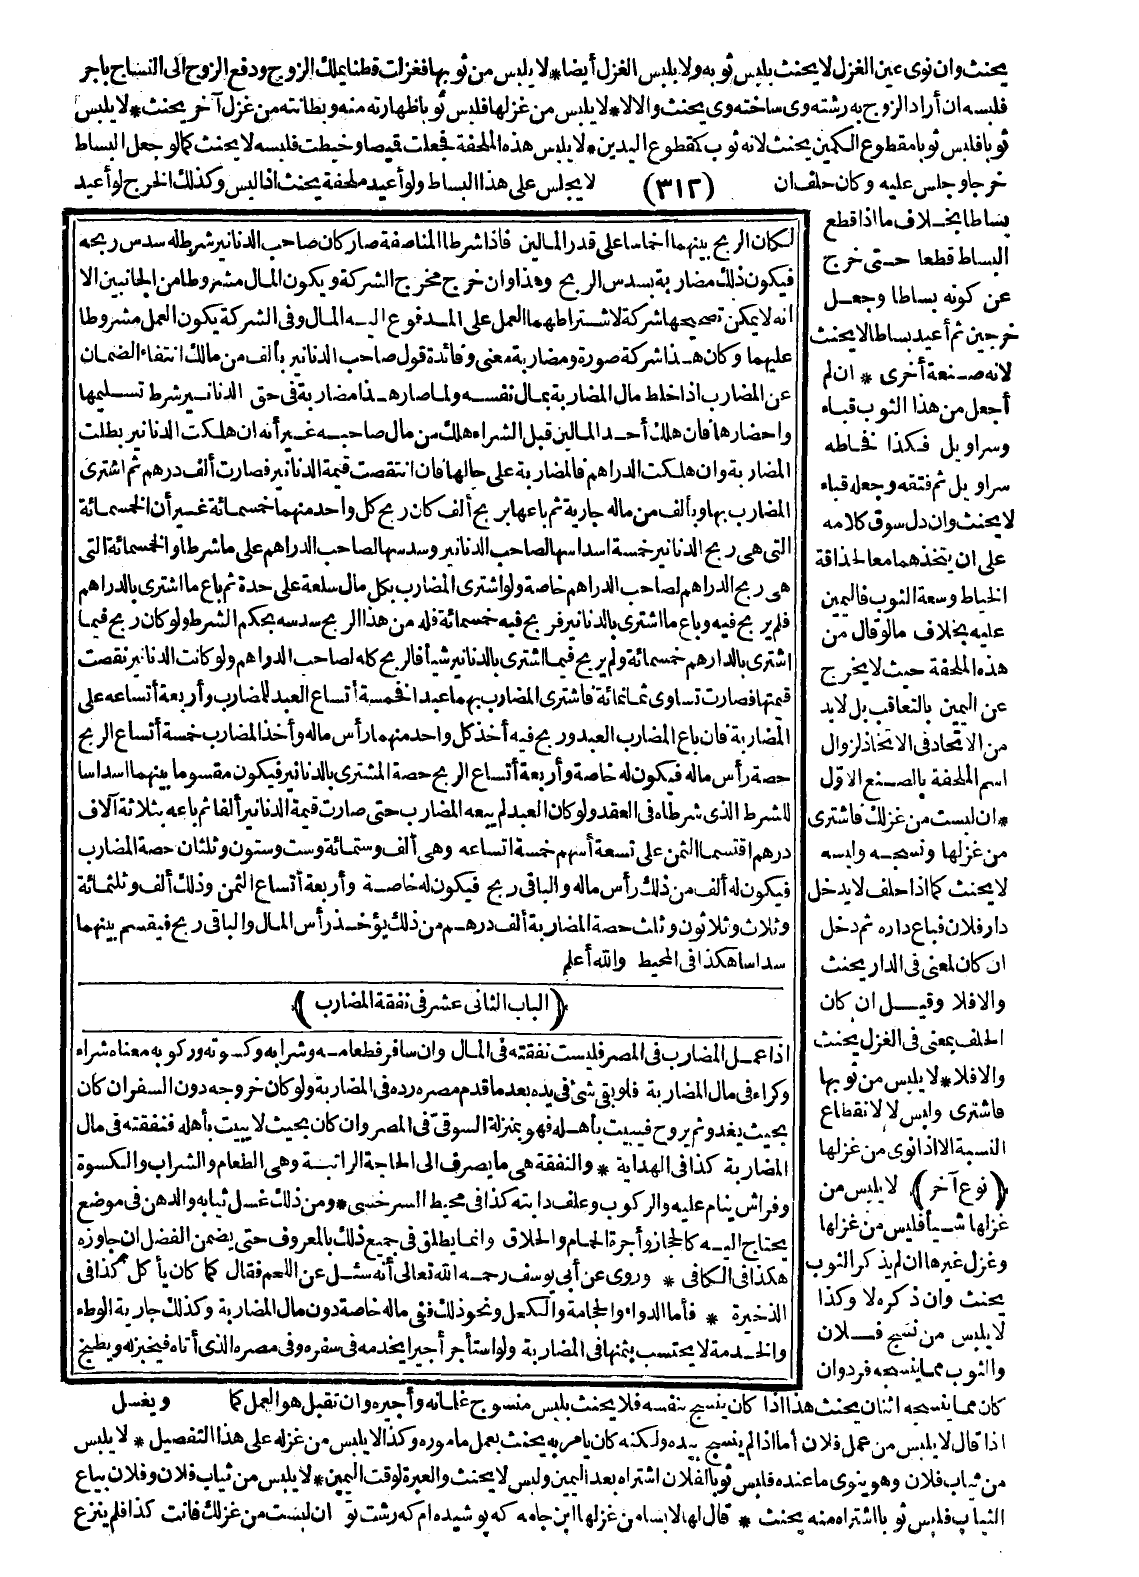 يحنث وان نوى عين الغزل لا يحنث بلبس ثوبه ولا يلبس الغزل أيضا * لا يلبس من ثوبها فغزلت قطنا بملك الزوج ودفع الزوج الى النساج باجر
فلبسه ان أراد الزوج به رشته وى ساخته وى يحنث والا لا * لا يلبس من غزلها فلبس ثوبا ظهارته منه وبطانته من غزل آخر يحنث * لا يلبس
ثوبا فلبس ثوبا مقطوع الكمين يحنث لانه ثوب كمقطوع اليدين * لا يلبس هذه الملحفة فجعلت قميصا وخيطت فلبسه لا يحنث كما لو جعل البساط
خرجا وجلس عليه وكان حلف ان (٣١٢) لا يجلس على هذا البساط ولو أعيد ملحفة يحنث اذا لبس وكذلك الخرج لو أعيد
بساطا بخلاف ما اذا قطع
البساط قطعا حتى خرج
عن كونه بساطا وجعل
خرجين ثم أعيد بساطا لا يحنث
لانه صنعة أخرى * ان لم
أجعل من هذا الثوب قباء
وسراويل فكذا فخاطه
سراويل ثم فتقه وجعله قباء
لا يحنث وان دل سوق كلامه
على ان يتخذهما معا لحذاقة
الخياط وسعة الثوب فاليمين
عليه بخلاف مالو قال من
هذه الملحفة حيث لا يخرج
عن اليمين بالتعاقب بل لابد
من الاتحاد فى الاتخاذ لزوال
اسم الملحفة بالصنع الاول
* ان لبست من غزلك فاشترى
من غزلها ونسجه ولبسه
لا يحنث كما اذا حلف لا يدخل
دار فلان فباع داره ثم دخل
ان كان لمعنى فى الدار يحنث
والا فلا وقيل ان كان
الحلف بمعنى فى الغزل يحنث
والا فلا * لا يلبس من ثوبها
فاشترى ولبس لا لانقطاع
النسبة الا اذا نوى من غزلها
(نوع آخر) لا يلبس من
غزلها شيأ فلبس من غزلها
وغزل غيرها ان لم يذكر الثوب
يحنث وان ذكره لا وكذا
لا يلبس من نسج فلان
والثوب مما ينسجه فردوان
لكان الربح بينهما اخماسا على قدر المالين فاذا شرطا المناصفة صار كان صاحب الدنانير شرط له سدس ربحه
فيكون ذلك مضاربة بسدس الربح وهذا وان خرج مخرج الشركة ويكون المال مشروطا من الجانبين الا
أنه لا يمكن تصحيحها شركة لاشتراطهما العمل على المدفوع اليه المال وفى الشركة يكون العمل مشروطا
عليهما وكان هذا شركة صورة ومضاربة معنى وفائدة قول صاحب الدنانير بألف من مالك انتفاء الضمان
عن المضارب اذا خلط مال المضاربة بمال نفسه ولما صار هذا مضاربة فى حق الدنانير شرط تسليمها
واحضارها فان هلك أحد المالين قبل الشراء هلك من مال صاحبه غير أنه ان هلكت الدنانير بطلت
المضاربة وان هلكت الدراهم فالمضاربة على حالها فان انتقصت قيمة الدنانير فصارت ألف درهم ثم اشترى
المضارب بها وبألف من ماله جارية ثم باعها بربح ألف كان ربح كل واحد منهما خمسمائة غير أن الخمسمائة
التى هى ربح الدنانير خمسة اسداسها لصاحب الدنانير وسدسها لصاحب الدراهم على ما شرطا والخمسمائة التى
هى ربح الدراهم لصاحب الدراهم خاصة ولو اشترى المضارب بكل مال سلعة على حدة ثم باع ما اشترى بالدراهم
فلم يربح فيه وباع ما اشترى بالدنانير فربح فيه خمسمائة فله من هذا الربح سدسه بحكم الشرط ولو كان ربح فيما
اشترى بالدارهم خمسمائة ولم يربح فيما اشترى بالدنانير شيأ فالربح كله لصاحب الدواهم ولو كانت الدنانير نقصت
قيمتها فصارت تساوى ثمانمائة فاشترى المضارب بهما عبدا فخمسة أتساع العبد للمضارب وأربعة أتساعه على
المضاربة فان باع المضارب العبد وربح فيه أخذ كل واحد منهما رأس ماله وأخذ المضارب خمسة أتساع الربح
حصة رأس ماله فيكون له خاصة وأربعة أتساع الربح حصة المشترى بالدنانير فيكون مقسوما بينهما اسداسا
للشرط الذى شرطاه فى العقد ولو كان العبد لم يبعه المضارب حتى صارت قيمة الدنانير ألفا ثم باعه بثلاثة آلاف
درهم اقتسما الثمن على تسعة أسهم خمسة اتساعه وهى ألف وستمائة وست وستون وثلثان حصة المضارب
فيكون له ألف من ذلك رأس ماله والباقى ربح فيكون له خاصة وأربعة أتساع الثمن وذلك ألف وثلثمائة
وثلاث وثلاثون وثلث حصة المضاربة ألف درهم من ذلك يؤخذ رأس المال والباقى ربح فيقسم بينهما
سداسا هكذا فى المحيط والله أعلم
(الباب الثانى عشر فى نفقة المضارب)
اذا عمل المضارب فى المصر فليست نفقته فى المال وان سافر فطعامه وشرابه وكسوته وركوبه معناه شراء
وكراء فى مال المضاربة فلو بقى شئ فى يده بعد ما قدم مصره رده فى المضاربة ولو كان خروجه دون السفر ان كان
بحيث يغدو ثم يروح فيبيت بأهله فهو بمنزلة السوقى فى المصر وان كان بحيث لا يبيت بأهله فنفقته فى مال
المضاربة كذا فى الهداية * والنفقة هى ما يصرف الى الحاجة الراتبة وهى الطعام والشراب والكسوة
وفراش ينام عليه والركوب وعلف دابته كذا فى محيط السرخسى * ومن ذلك غسل ثيابه والدهن فى موضع
يحتاج اليه كالحجاز وأجرة الحمام والحلاق وانما يطلق فى جميع ذلك بالمعروف حتى يضمن الفضل ان جاوزه
هكذا فى الكافى * وروى عن أبى يوسف رحمه الله تعالى أنه سئل عن اللحم فقال كما كان يأكل كذا فى
الذخيرة * فأما الدواء والحجامة والكحل ونحو ذلك ففى ماله خاصة دون مال المضاربة وكذلك جارية الوطء
والخدمة لا يحتسب بثمنها فى المضاربة ولو استأجر أجيرا يخدمه فى سفره وفى مصره الذى أتاه فيخبزله ويطبخ
ويغسل
كان مما ينسجه اثنان يحنث هذا اذا كان ينسج بنفسه فلا يحنث بلبس منسوج غلمانه وأجيره وان تقبل هو العمل كما
اذا قال لا يلبس من عمل فلان أما اذا لم ينسج بيده ولكنه كان يأمر به يحنث بعمل ماموره وكذا لا يلبس من غزله على هذا التفصيل * لا يلبس
من ثياب فلان وهو ينوى ما عنده فلبس ثوبا لفلان اشتراه بعد اليمين ولبس لا يحنث والعبرة لوقت اليمين * لا يلبس من ثياب فلان وفلان يباع
الثياب فلبس ثوبا اشتراه منه يحنث * قال لها لا بسا من غزلها اين جامه كه پوشيده ام كه رشت تو ان لبست من غزلك فانت كذا فلم ينزع